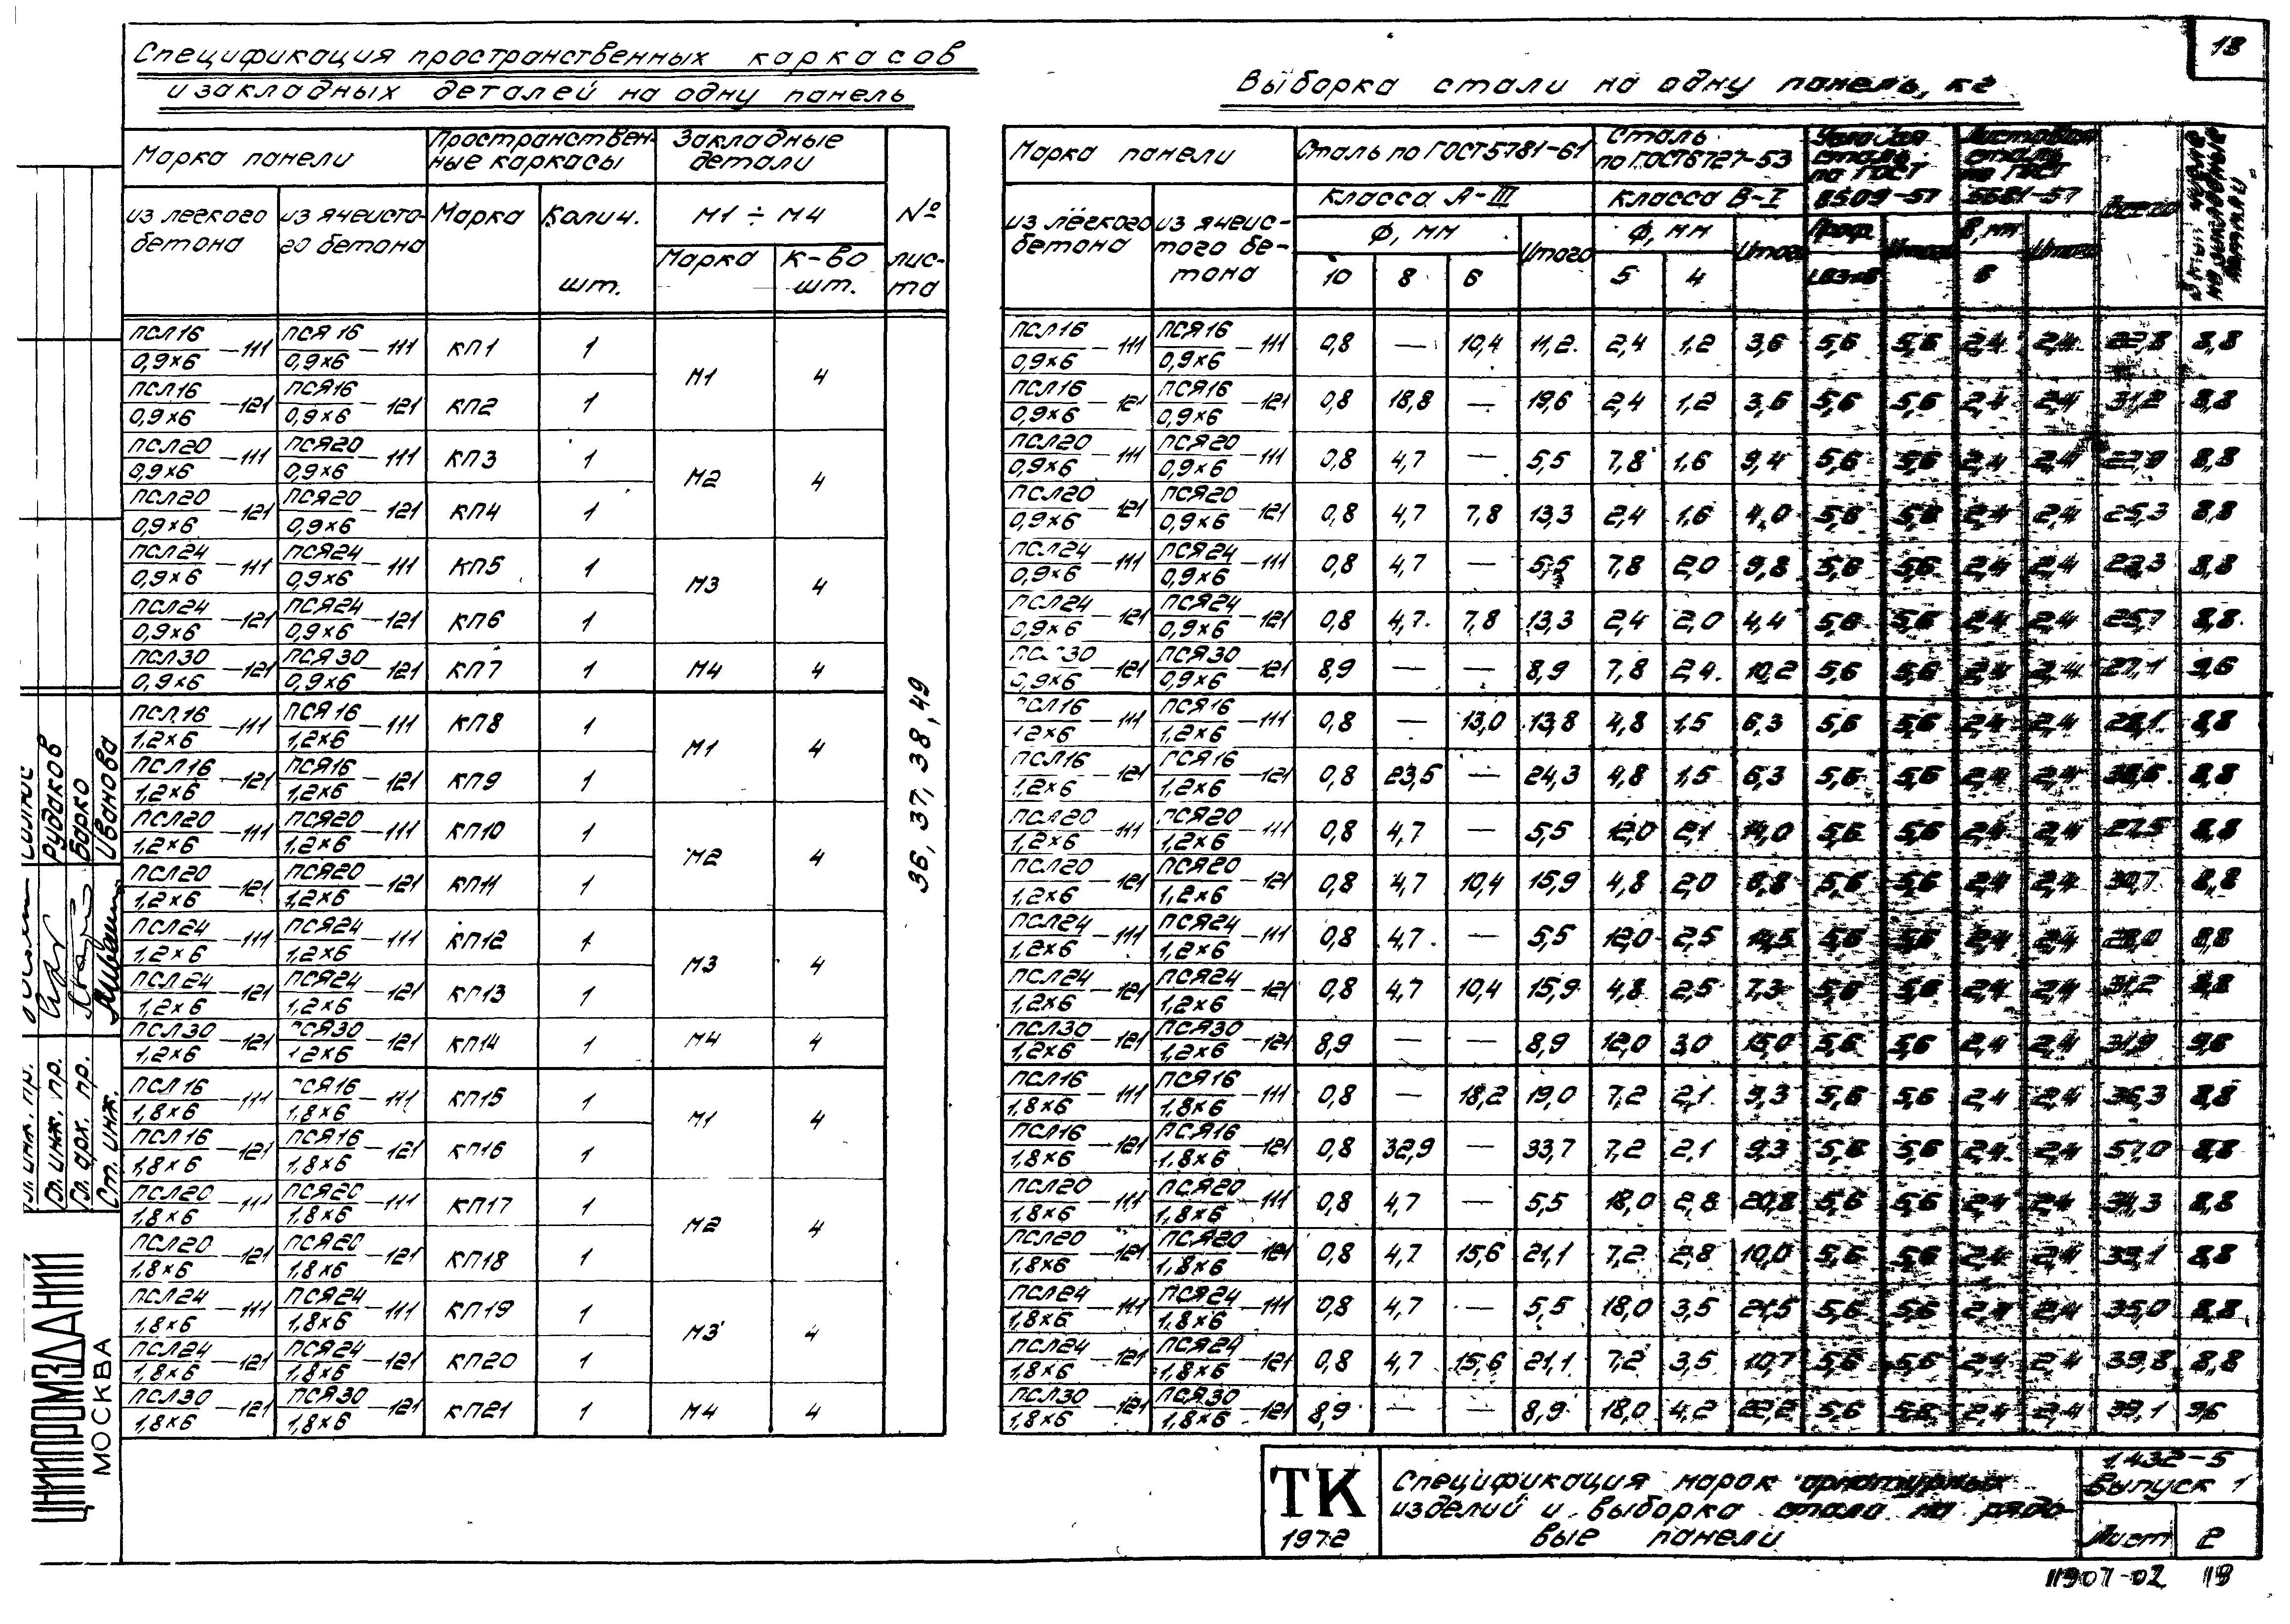 18
Спецификация пространственных каркасов
и закладных деталей на одну панель
Марка панели | Пространствен-ные каркасы | Закладные детали | № лис-та
из легкого бетона | из ячеисто-го бетона | Марка | Колич. шт. | М1 ÷ М4
Марка | К-во шт.
ПСЛ16/0,9×6 —111 | ПСЯ16/0,9×6 —111 | КП1 | 1 | М1 | 4 | 36, 37, 38, 49
ПСЛ16/0,9×6 —121 | ПСЯ16/0,9×6 —121 | КП2 | 1
ПСЛ20/0,9×6 —111 | ПСЯ20/0,9×6 —111 | КП3 | 1 | М2 | 4
ПСЛ20/0,9×6 —121 | ПСЯ20/0,9×6 —121 | КП4 | 1
ПСЛ24/0,9×6 —111 | ПСЯ24/0,9×6 —111 | КП5 | 1 | М3 | 4
ПСЛ24/0,9×6 —121 | ПСЯ24/0,9×6 —121 | КП6 | 1
ПСЛ30/0,9×6 —121 | ПСЯ30/0,9×6 —121 | КП7 | 1 | М4 | 4
ПСЛ16/1,2×6 —111 | ПСЯ16/1,2×6 —111 | КП8 | 1 | М1 | 4
ПСЛ16/1,2×6 —121 | ПСЯ16/1,2×6 —121 | КП9 | 1
ПСЛ20/1,2×6 —111 | ПСЯ20/1,2×6 —111 | КП10 | 1 | М2 | 4
ПСЛ20/1,2×6 —121 | ПСЯ20/1,2×6 —121 | КП11 | 1
ПСЛ24/1,2×6 —111 | ПСЯ24/1,2×6 —111 | КП12 | 1 | М3 | 4
ПСЛ24/1,2×6 —121 | ПСЯ24/1,2×6 —121 | КП13 | 1
ПСЛ30/1,2×6 —121 | ПСЯ30/1,2×6 —121 | КП14 | 1 | М4 | 4
ПСЛ16/1,8×6 —111 | ПСЯ16/1,8×6 —111 | КП15 | 1 | М1 | 4
ПСЛ16/1,8×6 —121 | ПСЯ16/1,8×6 —121 | КП16 | 1
ПСЛ20/1,8×6 —111 | ПСЯ20/1,8×6 —111 | КП17 | 1 | М2 | 4
ПСЛ20/1,8×6 —121 | ПСЯ20/1,8×6 —121 | КП18 | 1
ПСЛ24/1,8×6 —111 | ПСЯ24/1,8×6 —111 | КП19 | 1 | М3 | 4
ПСЛ24/1,8×6 —121 | ПСЯ24/1,8×6 —121 | КП20 | 1
ПСЛ30/1,8×6 —121 | ПСЯ30/1,8×6 —121 | КП21 | 1 | М4 | 4
Выборка стали на одну панель, кг
Марка панели | Сталь по ГОСТ 5781-61 | Сталь по ГОСТ 6727-53 | Угловая сталь по ГОСТ 8509-57 | Листовая сталь по ГОСТ 5681-57 | Всего
из лёгкого бетона | из ячеис-того бе-тона | класса А-III | класса В-I
Ф, мм | Итого | Ф, мм | Итого | Проф. | Итого | мм | Итого
10 | 8 | 6 | 5 | 4 | 6
ПСЛ16/0,9×6 —111 | ПСЯ16/0,9×6 —111 | 0,8 | — | 10,4 | 11,2 | 2,4 | 1,2 | 3,6 | 5,6 | 5,6 | 2,4 | 2,4 | 22,8 | 8,8
ПСЛ16/0,9×6 —121 | ПСЯ16/0,9×6 —121 | 0,8 | 18,8 | — | 19,6 | 2,4 | 1,2 | 3,6 | 5,6 | 5,6 | 2,4 | 2,4 | 31,2 | 8,8
ПСЛ20/0,9×6 —111 | ПСЯ20/0,9×6 —111 | 0,8 | 4,7 | — | 5,5 | 7,8 | 1,6 | 9,4 | 5,6 | 5,6 | 2,4 | 2,4 | 22,9 | 8,8
ПСЛ20/0,9×6 —121 | ПСЯ20/0,9×6 —121 | 0,8 | 4,7 | 7,8 | 13,3 | 2,4 | 1,6 | 4,0 | 5,6 | 5,6 | 2,4 | 2,4 | 25,3 | 8,8
ПСЛ24/0,9×6 —111 | ПСЯ24/0,9×6 —111 | 0,8 | 4,7 | — | 5,5 | 7,8 | 2,0 | 9,8 | 5,6 | 5,6 | 2,4 | 2,4 | 23,3 | 8,8
ПСЛ24/0,9×6 —121 | ПСЯ24/0,9×6 —121 | 0,8 | 4,7 | 7,8 | 13,3 | 2,4 | 2,0 | 4,4 | 5,6 | 5,6 | 2,4 | 2,4 | 25,7 | 8,8
ПСЛ30/0,9×6 —121 | ПСЯ30/0,9×6 —121 | 8,9 | — | — | 8,9 | 7,8 | 2,4 | 10,2 | 5,6 | 5,6 | 2,4 | 2,4 | 27,1 | 9,6
ПСЛ16/1,2×6 —111 | ПСЯ16/1,2×6 —111 | 0,8 | — | 13,0 | 13,8 | 4,8 | 1,5 | 6,3 | 5,6 | 5,6 | 2,4 | 2,4 | 28,1 | 8,8
ПСЛ16/1,2×6 —121 | ПСЯ16/1,2×6 —121 | 0,8 | 23,5 | — | 24,3 | 4,8 | 1,5 | 6,3 | 5,6 | 5,6 | 2,4 | 2,4 | 38,6 | 8,8
ПСЛ20/1,2×6 —111 | ПСЯ20/1,2×6 —111 | 0,8 | 4,7 | — | 5,5 | 12,0 | 2,1 | 14,0 | 5,6 | 5,6 | 2,4 | 2,4 | 27,5 | 8,8
ПСЛ20/1,2×6 —121 | ПСЯ20/1,2×6 —121 | 0,8 | 4,7 | 10,4 | 15,9 | 4,8 | 2,0 | 6,8 | 5,6 | 5,6 | 2,4 | 2,4 | 30,7 | 8,8
ПСЛ24/1,2×6 —111 | ПСЯ24/1,2×6 —111 | 0,8 | 4,7 | — | 5,5 | 12,0 | 2,5 | 14,5 | 5,6 | 5,6 | 2,4 | 2,4 | 28,0 | 8,8
ПСЛ24/1,2×6 —121 | ПСЯ24/1,2×6 —121 | 0,8 | 4,7 | 10,4 | 15,9 | 4,8 | 2,5 | 7,3 | 5,6 | 5,6 | 2,4 | 2,4 | 31,2 | 8,8
ПСЛ30/1,2×6 —121 | ПСЯ30/1,2×6 —121 | 8,9 | — | — | 8,9 | 12,0 | 3,0 | 15,0 | 5,6 | 5,6 | 2,4 | 2,4 | 31,9 | 9,6
ПСЛ16/1,8×6 —111 | ПСЯ16/1,8×6 —111 | 0,8 | — | 18,2 | 19,0 | 7,2 | 2,1 | 9,3 | 5,6 | 5,6 | 2,4 | 2,4 | 36,3 | 8,8
ПСЛ16/1,8×6 —121 | ПСЯ16/1,8×6 —121 | 0,8 | 32,9 | — | 33,7 | 7,2 | 2,1 | 9,3 | 5,6 | 5,6 | 2,4 | 2,4 | 57,0 | 8,8
ПСЛ20/1,8×6 —111 | ПСЯ20/1,8×6 —111 | 0,8 | 4,7 | — | 5,5 | 18,0 | 2,8 | 20,8 | 5,6 | 5,6 | 2,4 | 2,4 | 34,3 | 8,8
ПСЛ20/1,8×6 —121 | ПСЯ20/1,8×6 —121 | 0,8 | 4,7 | 15,6 | 21,1 | 7,2 | 2,8 | 10,0 | 5,6 | 5,6 | 2,4 | 2,4 | 39,1 | 8,8
ПСЛ24/1,8×6 —111 | ПСЯ24/1,8×6 —111 | 0,8 | 4,7 | — | 5,5 | 18,0 | 3,5 | 21,5 | 5,6 | 5,6 | 2,4 | 2,4 | 35,0 | 8,8
ПСЛ24/1,8×6 —121 | ПСЯ24/1,8×6 —121 | 0,8 | 4,7 | 15,6 | 21,1 | 7,2 | 3,5 | 10,7 | 5,6 | 5,6 | 2,4 | 2,4 | 39,8 | 8,8
ПСЛ30/1,8×6 —121 | ПСЯ30/1,8×6 —121 | 8,9 | — | — | 8,9 | 18,0 | 4,2 | 22,2 | 5,6 | 5,6 | 2,4 | 2,4 | 39,1 | 9,6
Рудаков
Барко
Иванова
Гл. инж. пр.
Гл. арх. пр.
Ст. инж.
ЦНИИПРОМЗДАНИЙ
МОСКВА
ТК
1972
Спецификация марок арматурных
изделий и выборка стали на рядо-
вые панели
1.432-5
Выпуск 1
Лист 2
11907-02 19